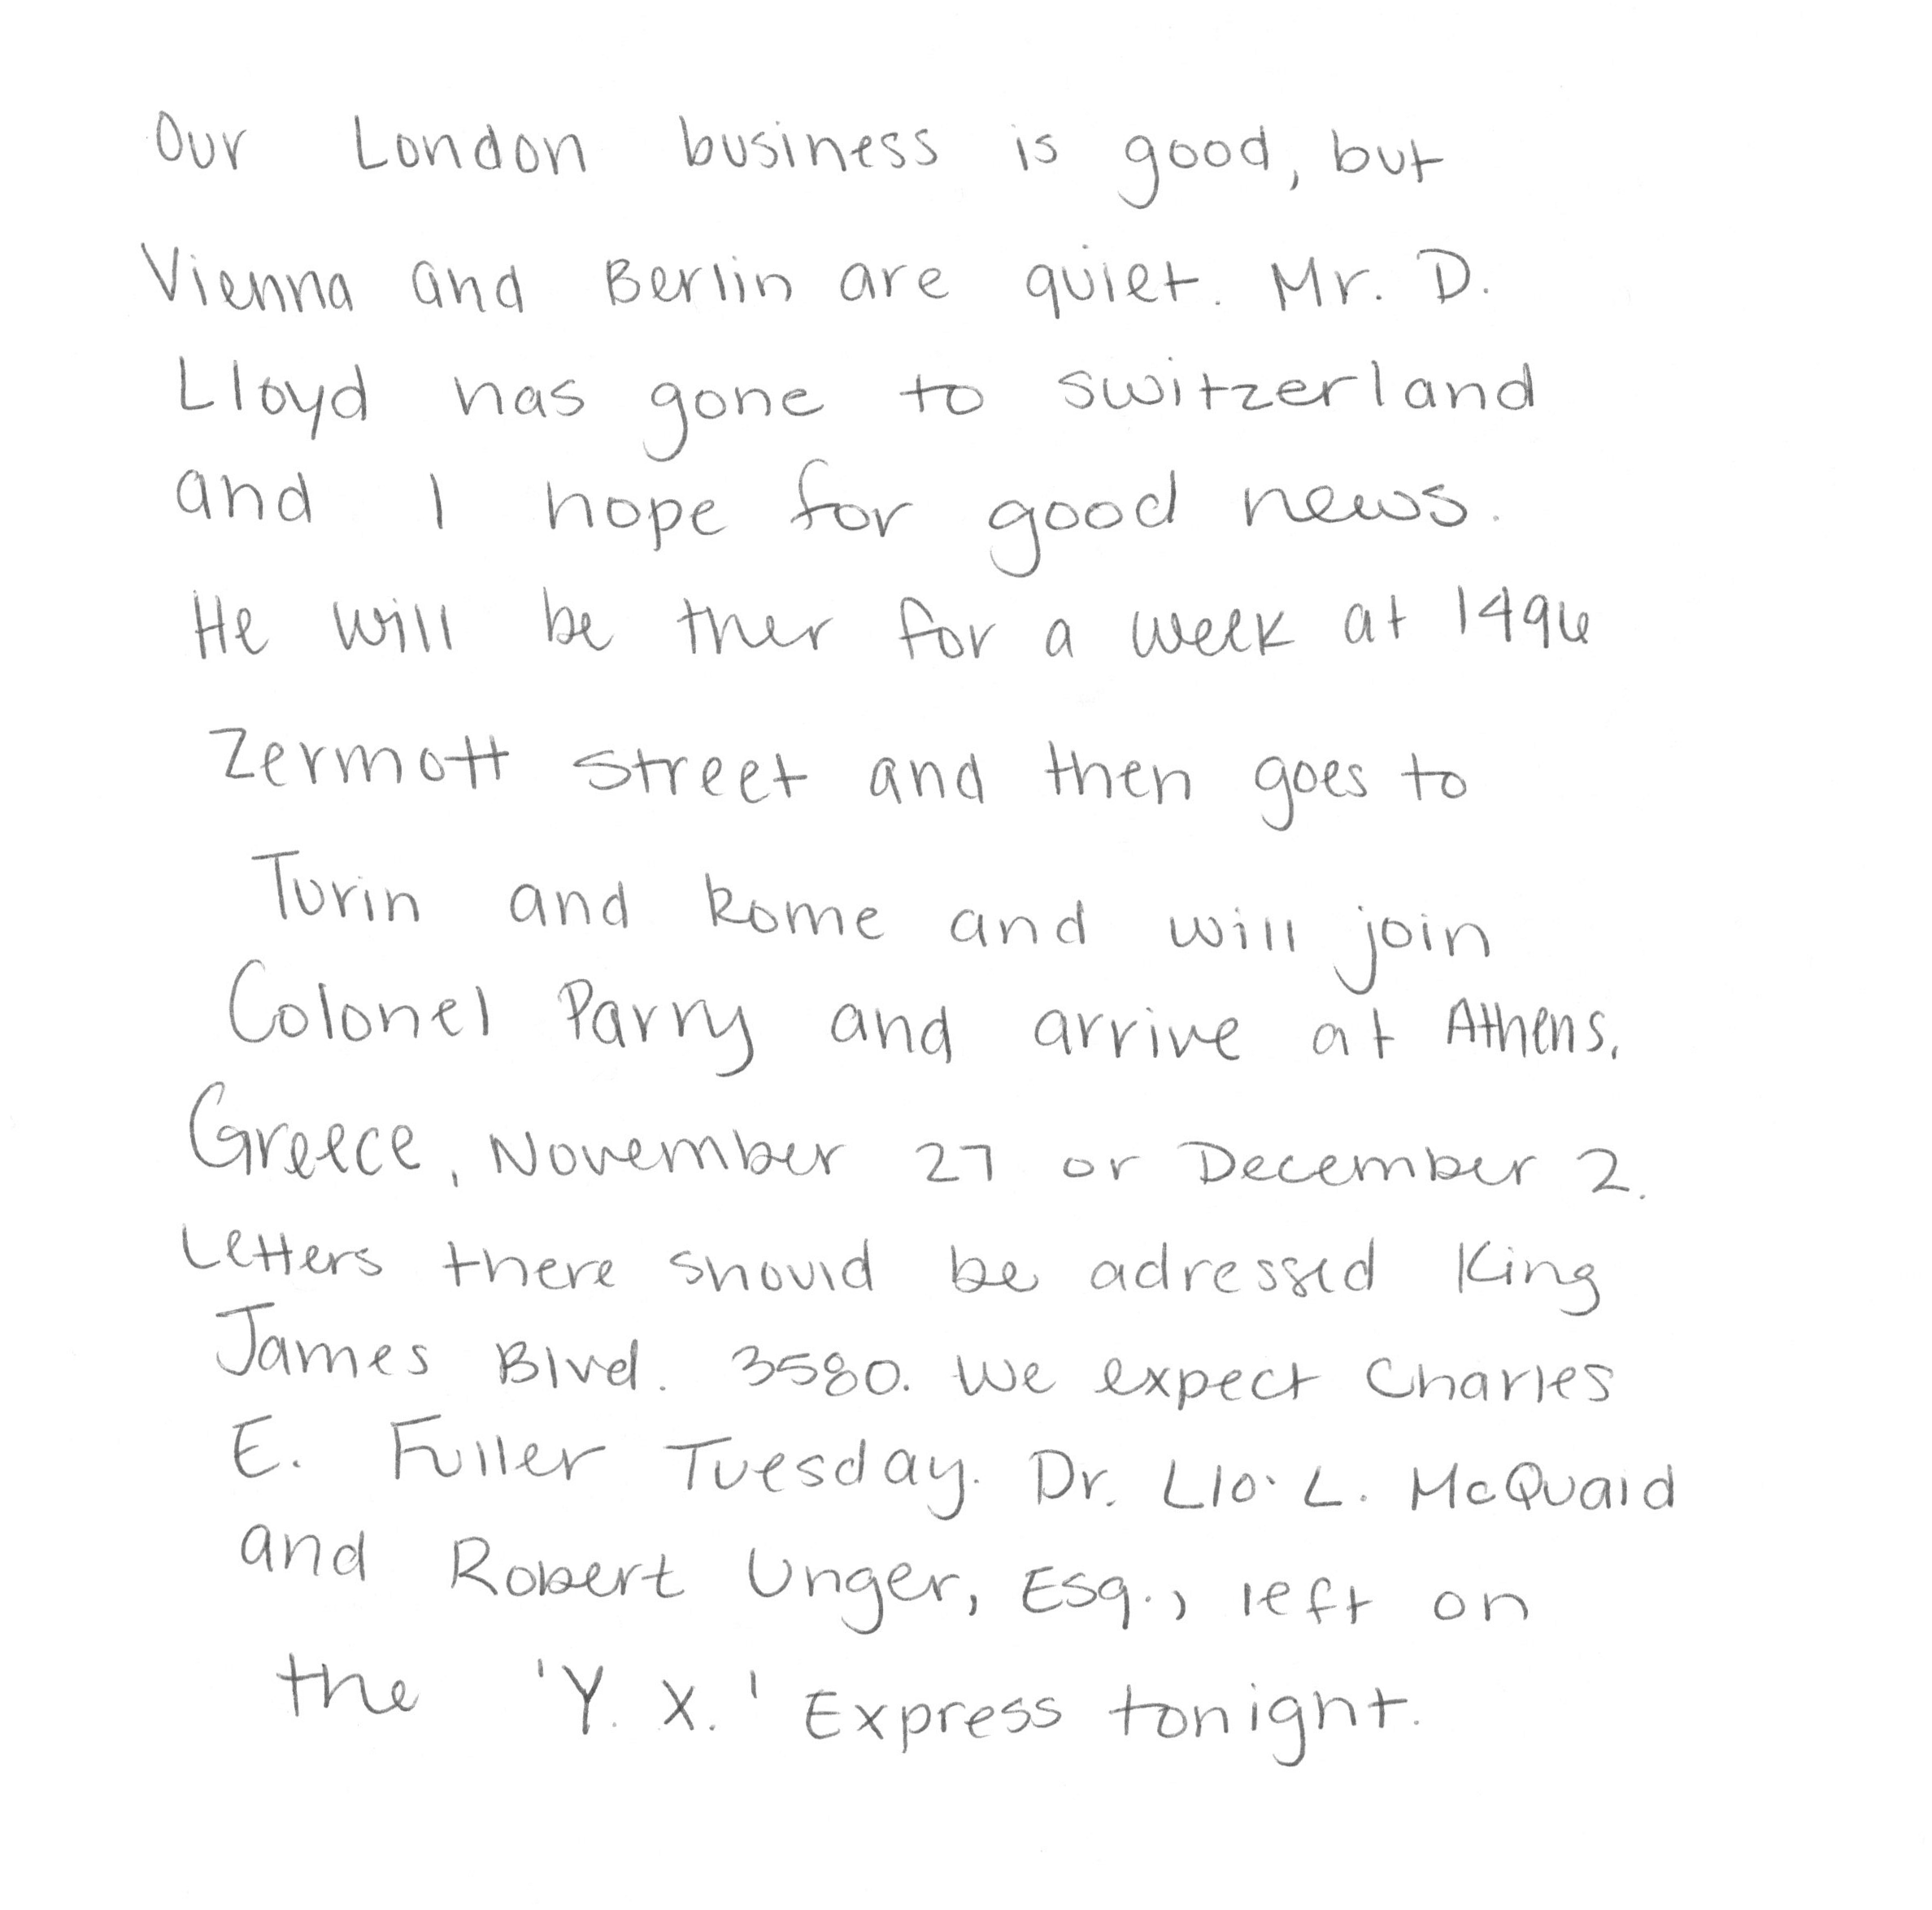 Our London business is good, but
Vienna and Berlin are quiet. Mr. D.
Lloyd has gone to switzerland
and I hope for good news.
He will be ther for a week at 1496
Zermott street and then goes to
Turin and Rome and will join
Colonel Parry and arrive at Athens,
Greece, November 27 or December 2.
Letters there should be adressed King
James Blvd. 3580. We expect Charles
E. Fuller Tuesday. Dr. L10. L. McQuaid
and Robert Unger, Esq., left on
the 'Y. X.' Express tonight.